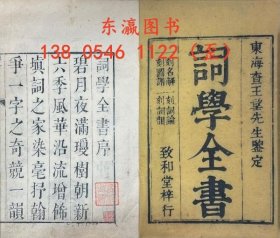 东瀛图书
138 0546 1122（至）
東海查王望先生鑒定
詞學全書
致和堂梓行
詞學全書序
碧月夜滿瓊樹朝新
六季風華沿流增飾
填詞之家染毫抒翰
爭一字之奇競一韻